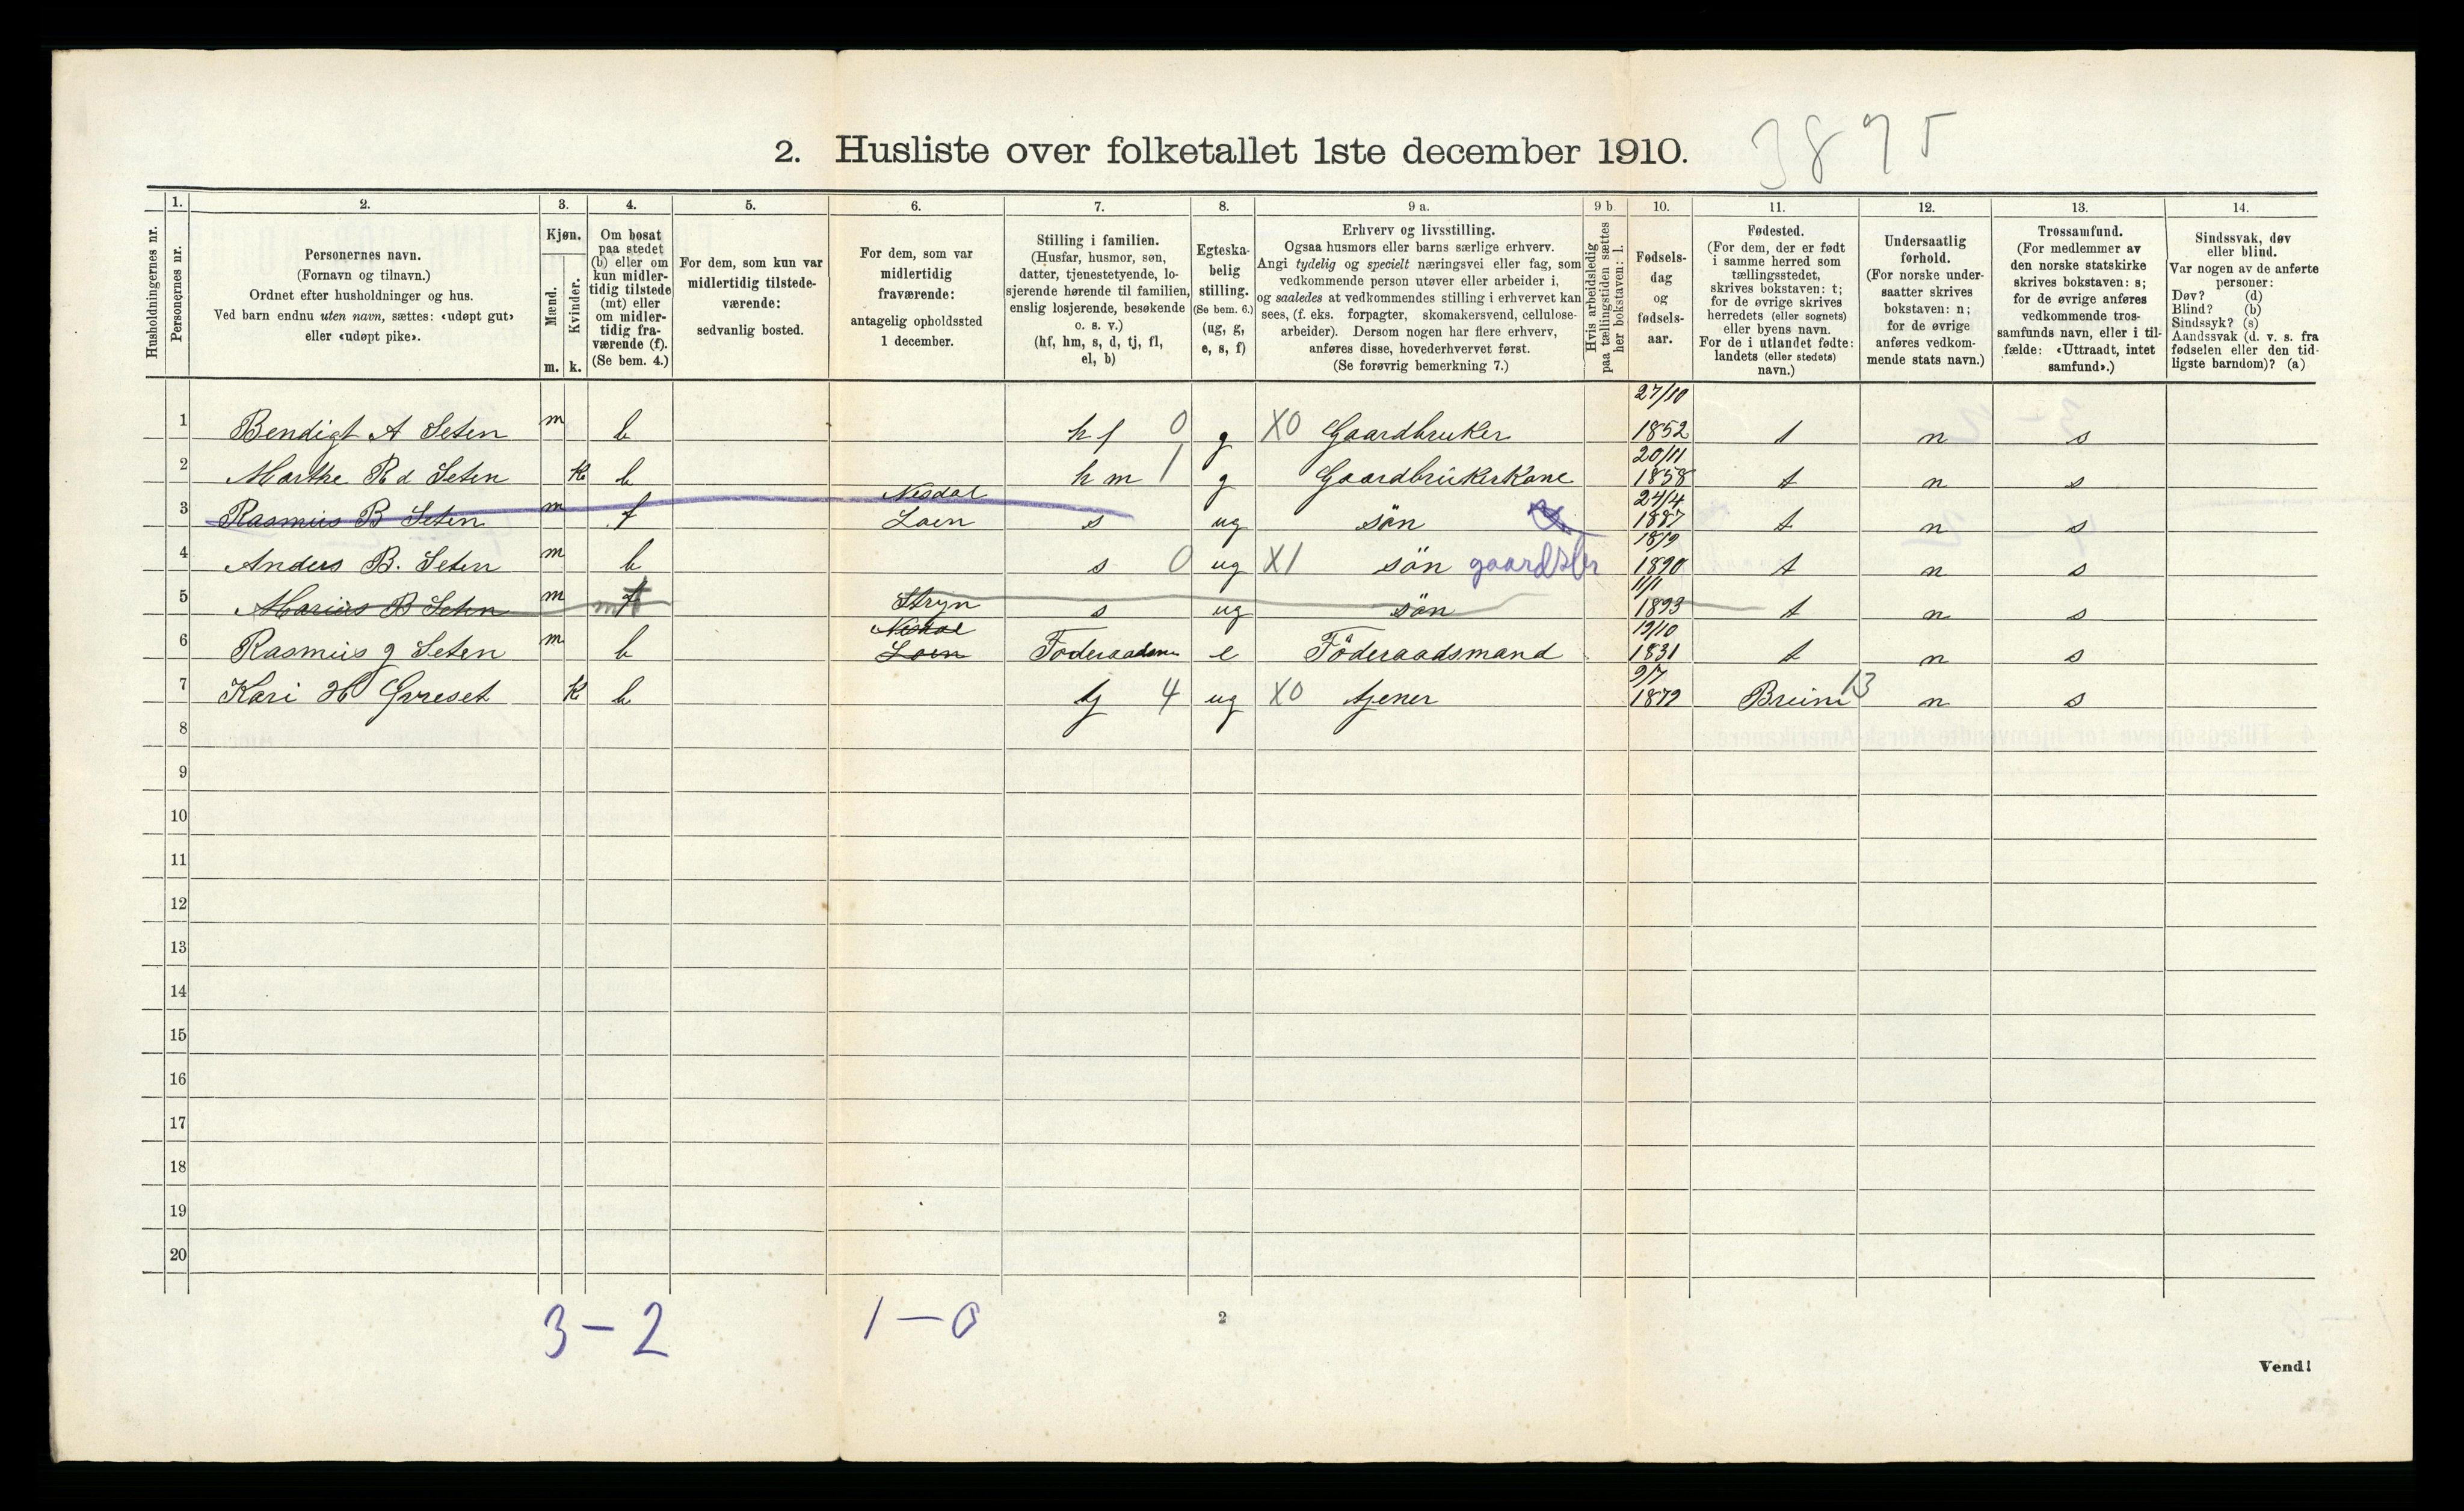 2. Husliste over folketallet 1ste december 1910. 3875
1. 2. 3. 4. 5. 6. 7. 8. 9 a. 9 b. 10. 11. 12. 13. 14.
Husholdningernes nr.
Personernes nr.
Personernes navn.
(Fornavn og tilnavn.)
Ordnet efter husholdninger og hus.
Ved barn endnu uten navn, sættes: «udøpt gut»
eller «udøpt pike».
Kjøn.
Mænd.
Kvinder.
m. k.
Om bosat
paa stedet
(b) eller om
kun midler-
tidig tilstede
(mt) eller
om midler-
tidig fra-
værende (f).
(Se bem. 4.)
For dem, som kun var
midlertidig tilstede-
værende:
sedvanlig bosted.
For dem, som var
midlertidig
fraværende:
antagelig opholdssted
1 december.
Stilling i familien.
(Husfar, husmor, søn,
datter, tjenestetyende, lo-
sjerende hørende til familien,
enslig losjerende, besøkende
o. s. v.)
(hf, hm, s, d, tj, fl,
el, b)
Egteska-
belig
stilling.
(Se bem. 6.)
(ug, g,
e, s, f)
Erhverv og livsstilling.
Ogsaa husmors eller barns særlige erhverv.
Angi tydelig og specielt næringsvei eller fag, som
vedkommende person utøver eller arbeider i,
og saaledes at vedkommendes stilling i erhvervet kan
sees, (f. eks. forpagter, skomakersvend, cellulose-
arbeider). Dersom nogen har flere erhverv,
anføres disse, hovederhvervet først.
(Se forøvrig bemerkning 7.)
Hvis arbeidsledig
paa tællingstiden sættes
her bokstaven: l.
Fødsels-
dag
og
fødsels-
aar.
Fødested.
(For dem, der er født
i samme herred som
tællingsstedet,
skrives bokstaven: t;
for de øvrige skrives
herredets (eller sognets)
eller byens navn.
For de i utlandet fødte:
landets (eller stedets)
navn.)
Undersaatlig
forhold.
(For norske under-
saatter skrives
bokstaven: n;
for de øvrige
anføres vedkom-
mende stats navn.)
Trossamfund.
(For medlemmer av
den norske statskirke
skrives bokstaven: s;
for de øvrige anføres
vedkommende tros-
samfunds navn, eller i til-
fælde: «Uttraadt, intet
samfund».)
Sindssvak, døv
eller blind.
Var nogen av de anførte
personer:
Døv? (d)
Blind? (b)
Sindssyk? (s)
Aandssvak (d. v. s. fra
fødselen eller den tid-
ligste barndom)? (a)
27/10
1 Bendigt A Seten m b hf 0 g X0 Gaardbruker 1852 t n s
20/11
2 Marthe R d Seten k b hm 1 g Gaardbrukerkone 1858 t n s
Nesdal 24/4
3 Rasmus B Seten m f Loen s ug sön 1887 t n s
18/9
4 Anders B. Seten m b s 0 ug X1 sön gaardsbr 1890 t n s
1/1
5 Marius B Seten m mt Stryn s ug sön 1893 t n s
Nesdal 19/10
6 Rasmus g Seten m b Loen Föderaadsm e Föderaadsmand 1831 t n s
9/7
7 Kari H Gvreset k b tj 4 ug X0 tjener 1872 Breim 13 n s
8
9
10
11
12
13
14
15
16
17
18
19
20
3 - 2 1 - 0
2
Vend!